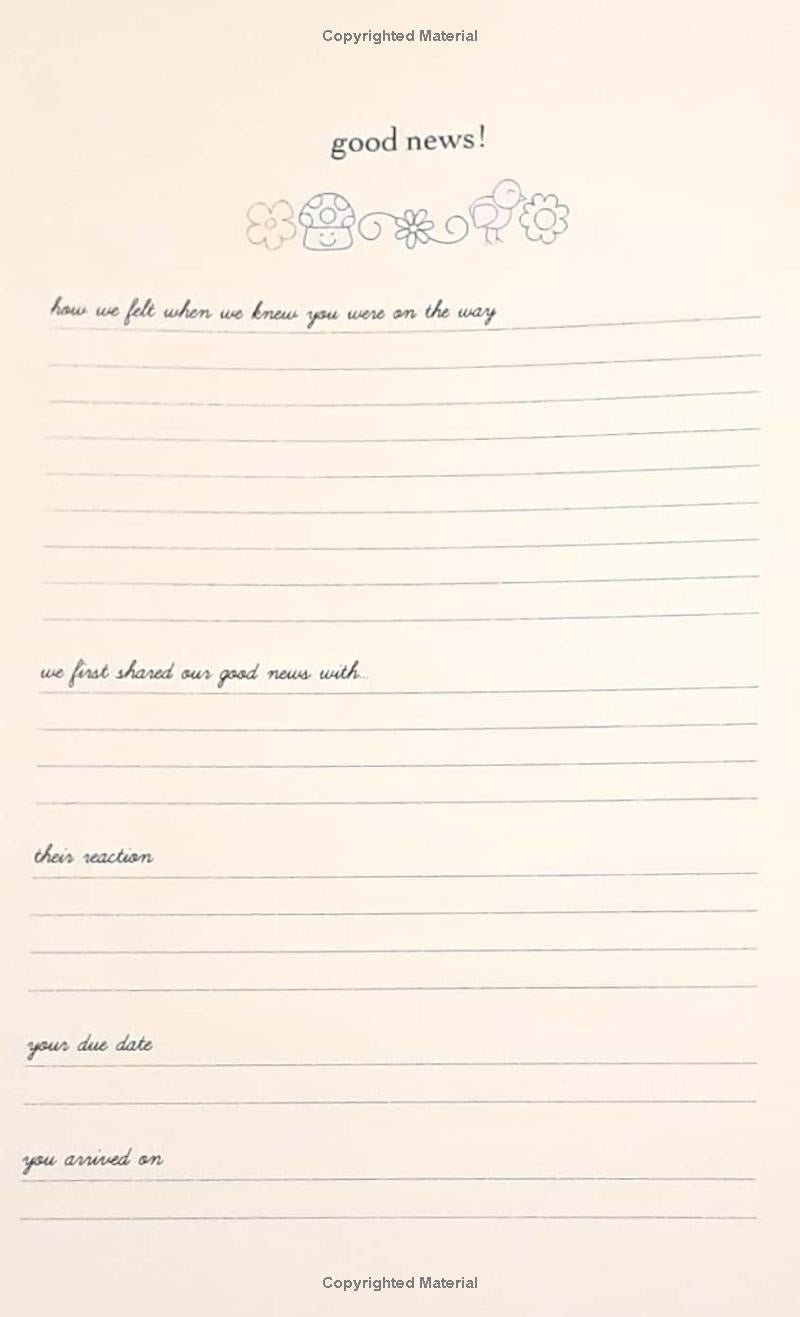 Copyrighted Material
good news!
how we felt when we knew you were on the way
we first shared our good news with...
their reaction
your due date
you arrived on
Copyrighted Material